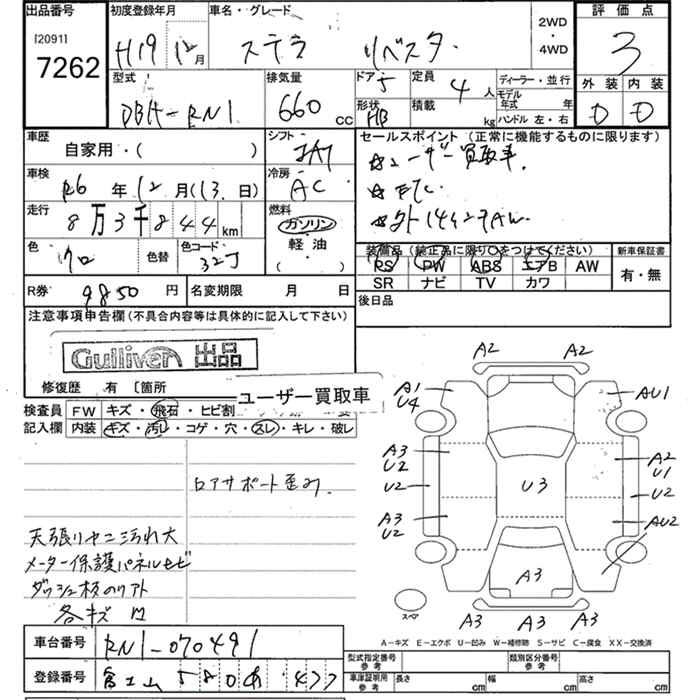 出品番号 初度登録年月 車名・グレード 2WD・4WD 評価点
[20911] 7262
H19 12月 ステラ リベスタ 3
外装 内装
D D
型式 排気量 ドア 定員 ディーラー・並行
DBA-RN1 660cc 5 4人 モデル年式 年
形状 積載 ハンドル 左・右
HB kg
車歴 シフト セールスポイント(正常に機能するものに限ります)
自家用・( )
☆ユーザー買取車.
車検 冷房
R6年12月(13.日) AC
☆ETC.
走行 燃料
8万3千844km ガソリン
軽油
( )
☆外14インチAW.
色 色替 色コード
クロ 32J
装備品(純正品に限り○をつけてください) 新車保証書
PS PW ABS エアB AW 有・無
SR ナビ TV カワ
R券 9850円 名変期限 月 日 後日品
注意事項申告欄(不具合内容等は具体的に記入して下さい)
Gulliver 出品
修復歴 有〔箇所
ユーザー買取車
検査員 FW キズ・飛石・ヒビ割
記入欄 内装 キズ・汚レ・コゲ・穴・スレ・キレ・破レ
ロアサポート歪み.
天張リヤニ汚れ大
メーター保護パネルキビ
ダッシュ板のリアト
各キズ
A2 A2
A1 U4 AU1
A3 U2 A2 U1
U2 U3 U2
A3 U2 AU2
A3
スペア
A3 A3 A3
A-キズ E-エクボ U-凹み W-補修跡 S-サビ C-腐食 XX-交換済
車台番号 RN1-070491
型式指定番号 参考 類別区分番号 参考
登録番号 富士山 580 あ ・477
車庫証明用 参考 長さ cm 幅 cm 高さ cm